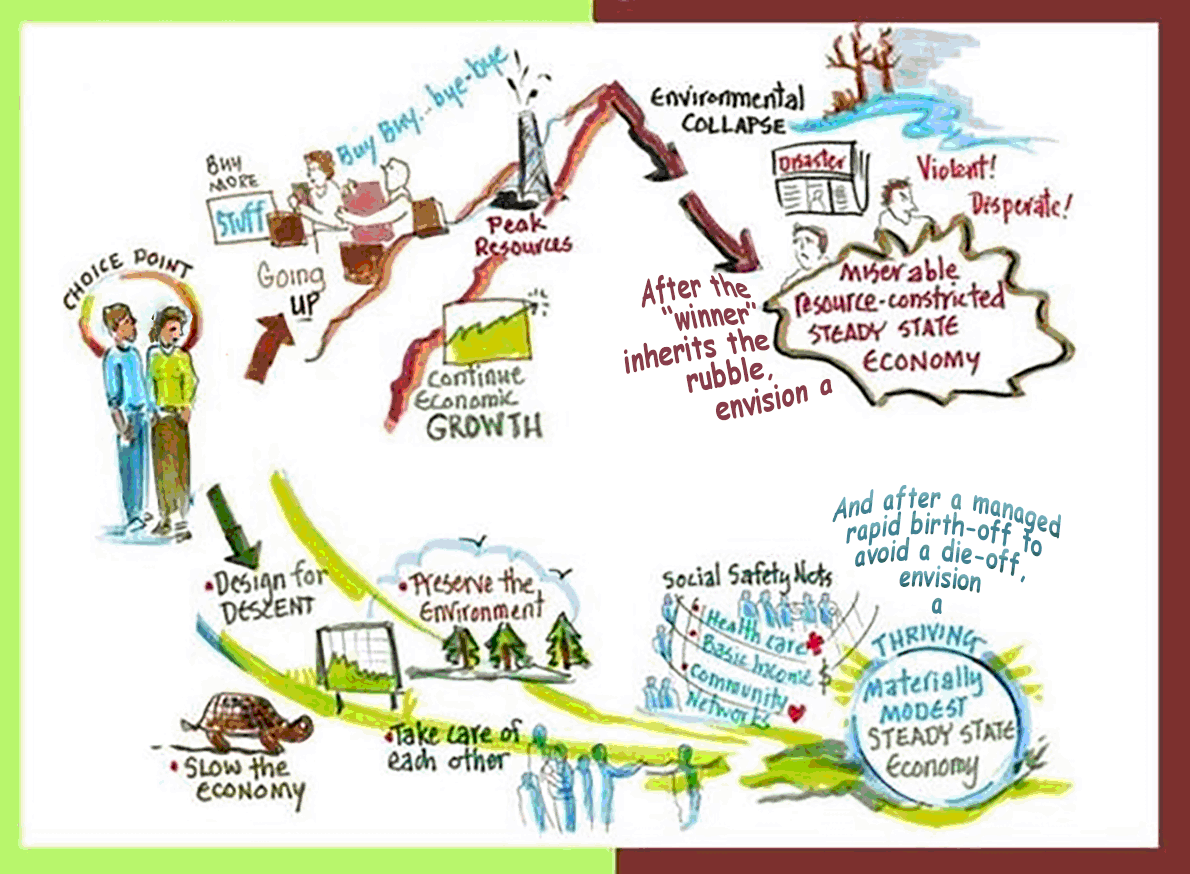 CHOICE POINT
BUY
MORE
STUFF
Buy Buy...bye-bye
Going
UP
Peak
Resources
Continue
Economic
GROWTH
Environmental
COLLAPSE
DISASTER
Violent!
Desperate!
Miserable
resource-constricted
STEADY STATE
ECONOMY
After the
"winner"
inherits the
rubble,
envision a
• Design for
DESCENT
• Preserve the
Environment
• SLOW the
ECONOMY
• Take care of
each other
Social Safety Nets
• Health care
• Basic Income
$
• Community
Networks
And after a managed
rapid birth-off to
avoid a die-off,
envision
a
THRIVING
Materially
MODEST
STEADY STATE
Economy